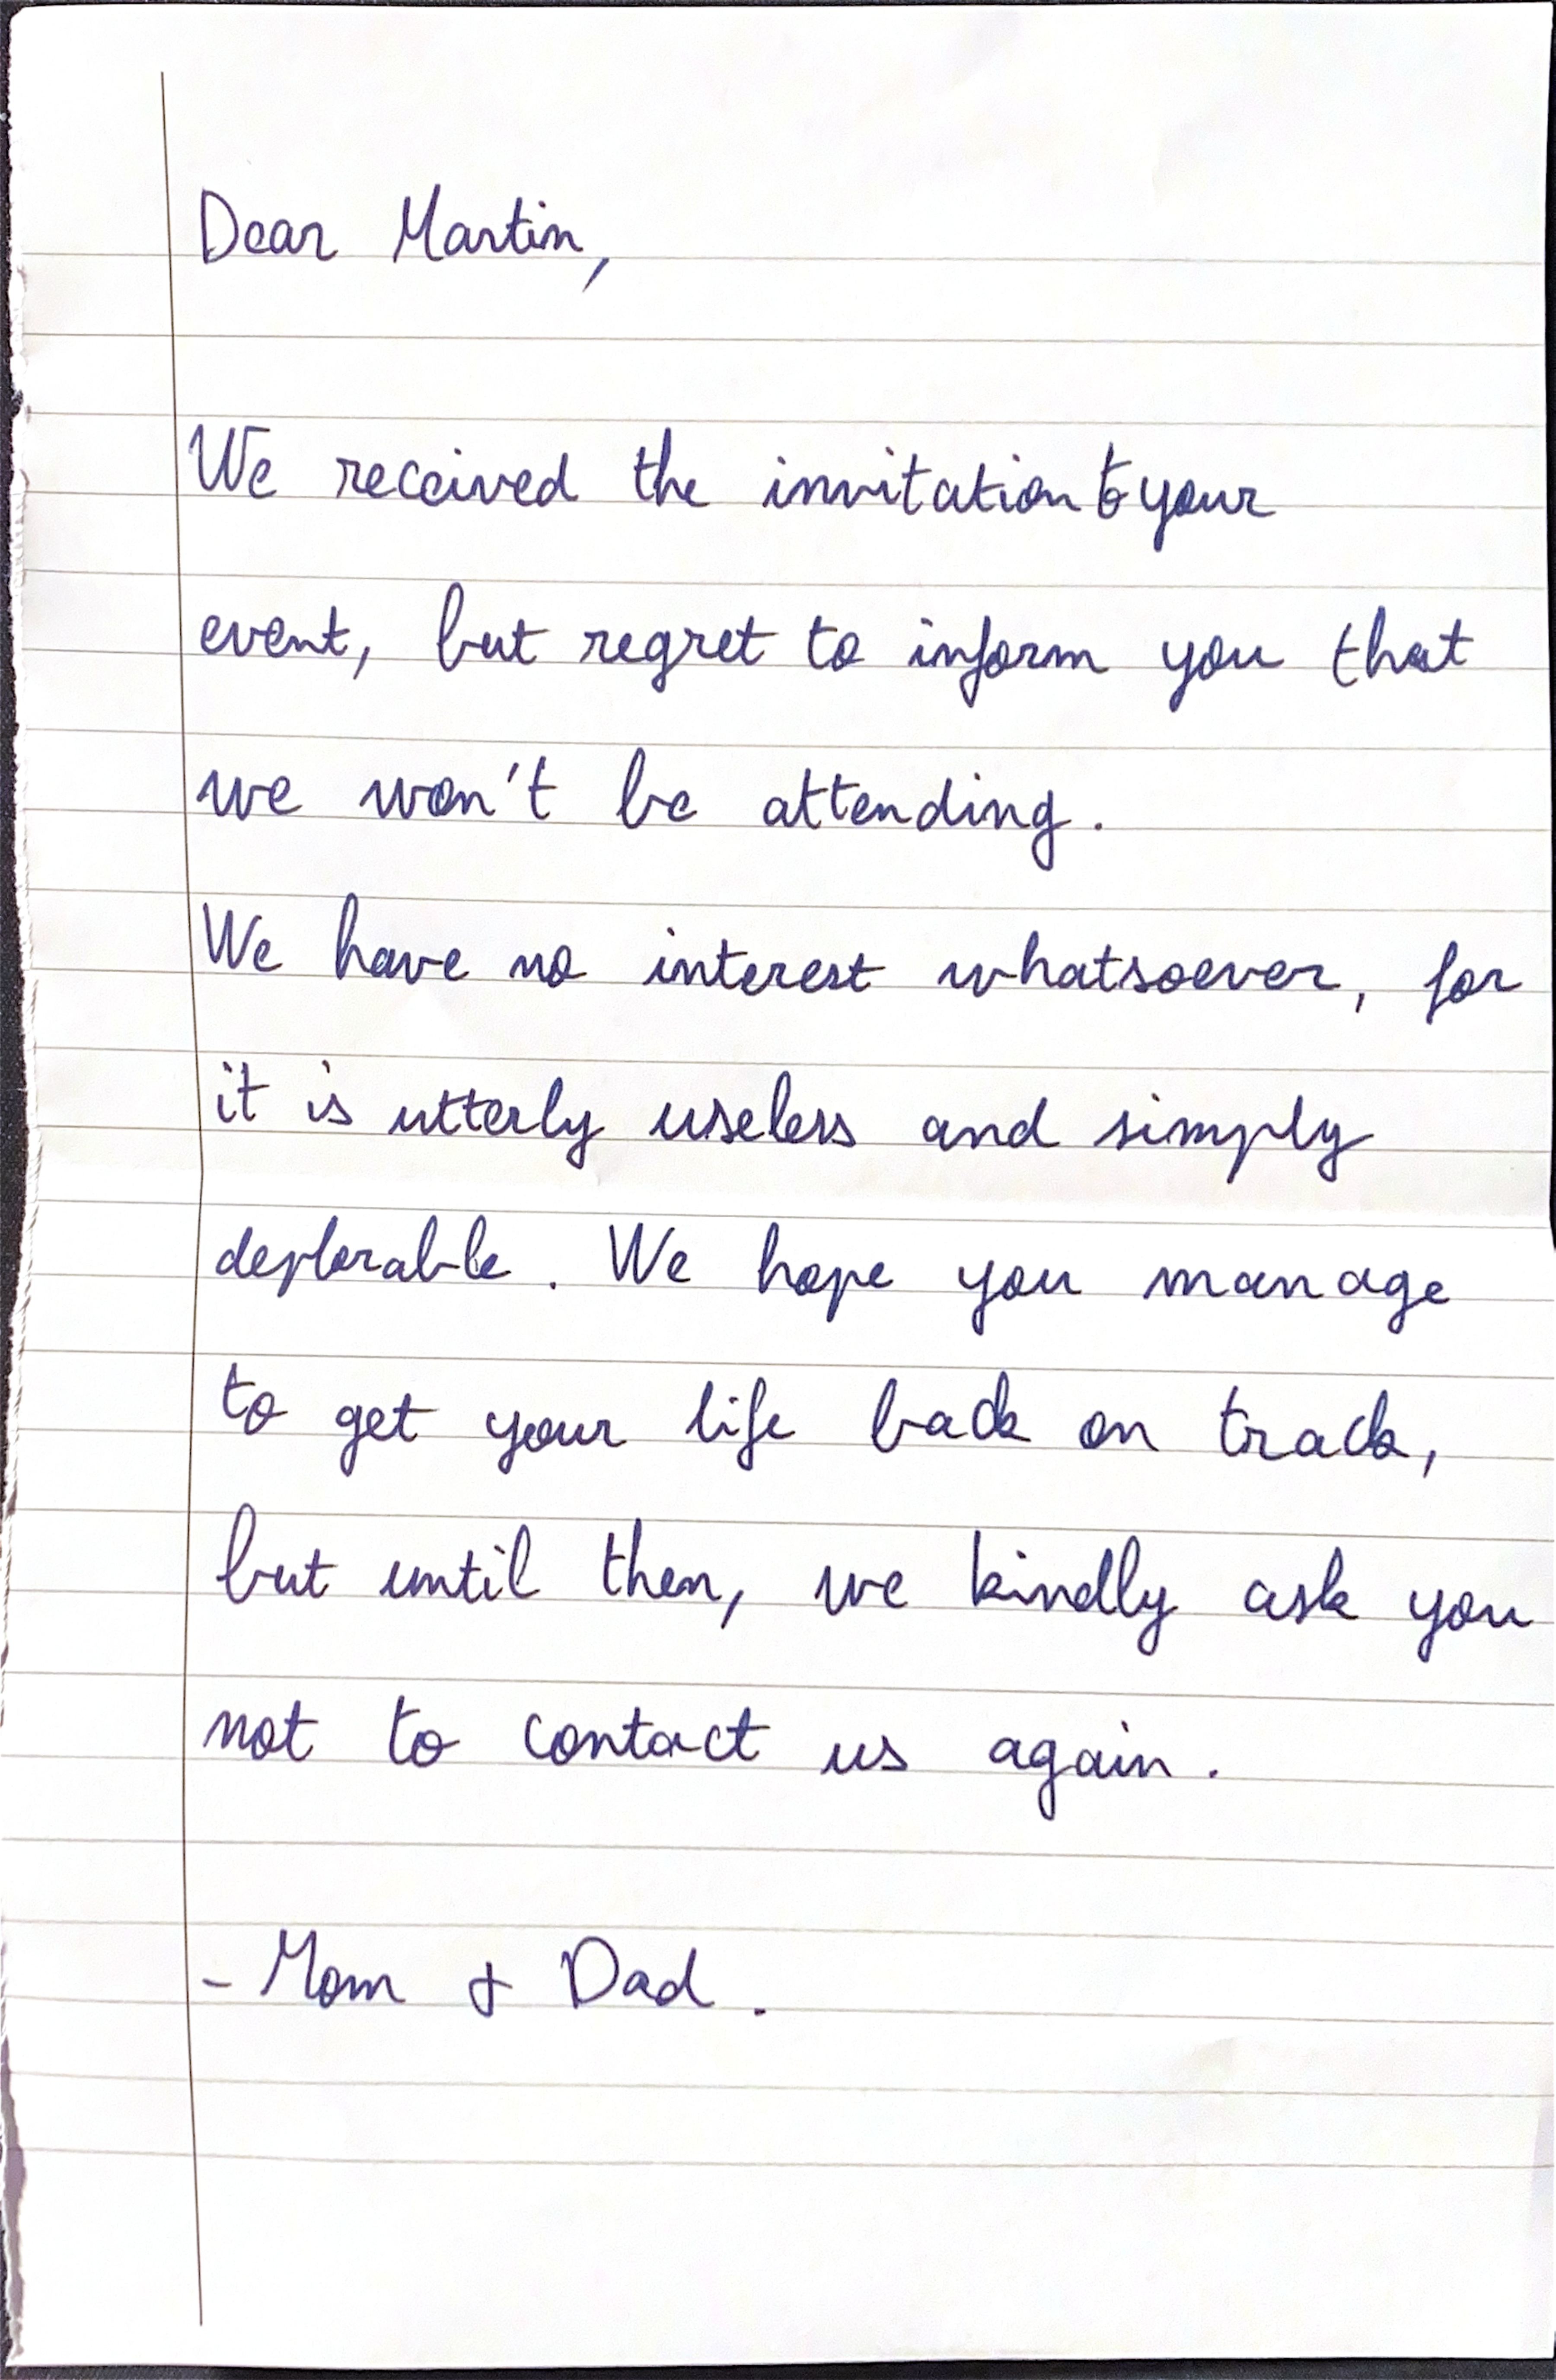 Dear Martin,
We received the invitation to your
event, but regret to inform you that
we won't be attending.
We have no interest whatsoever, for
it is utterly useless and simply
deplorable. We hope you manage
to get your life back on track,
but until then, we kindly ask you
not to contact us again.
- Mom & Dad.